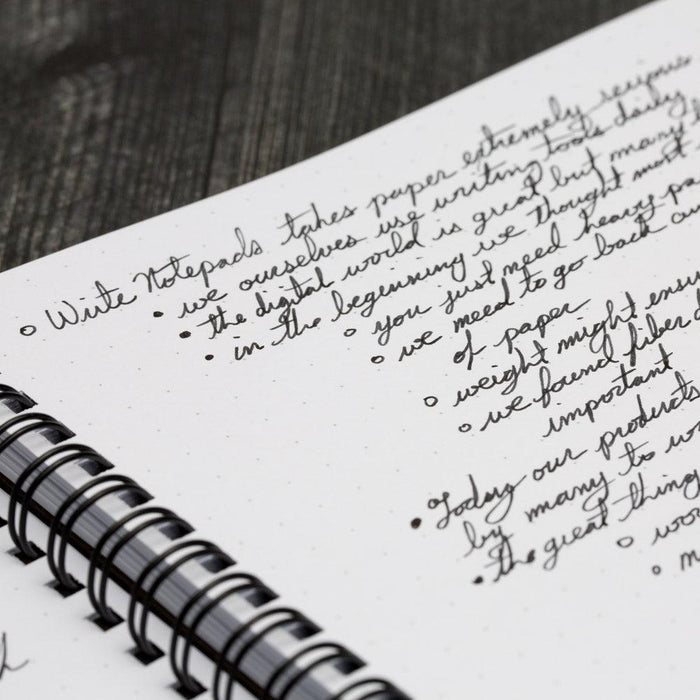 ○ Write Notepads takes paper extremely
• we ourselves use writing tools daily
• the digital world is great but many
• in the beginning we thought most
○ you just need heavy pa
○ we need to go back
of paper
○ weight might ensu
○ we found fiber
important
• Today our products
by many to
• the great thing
○
○ m